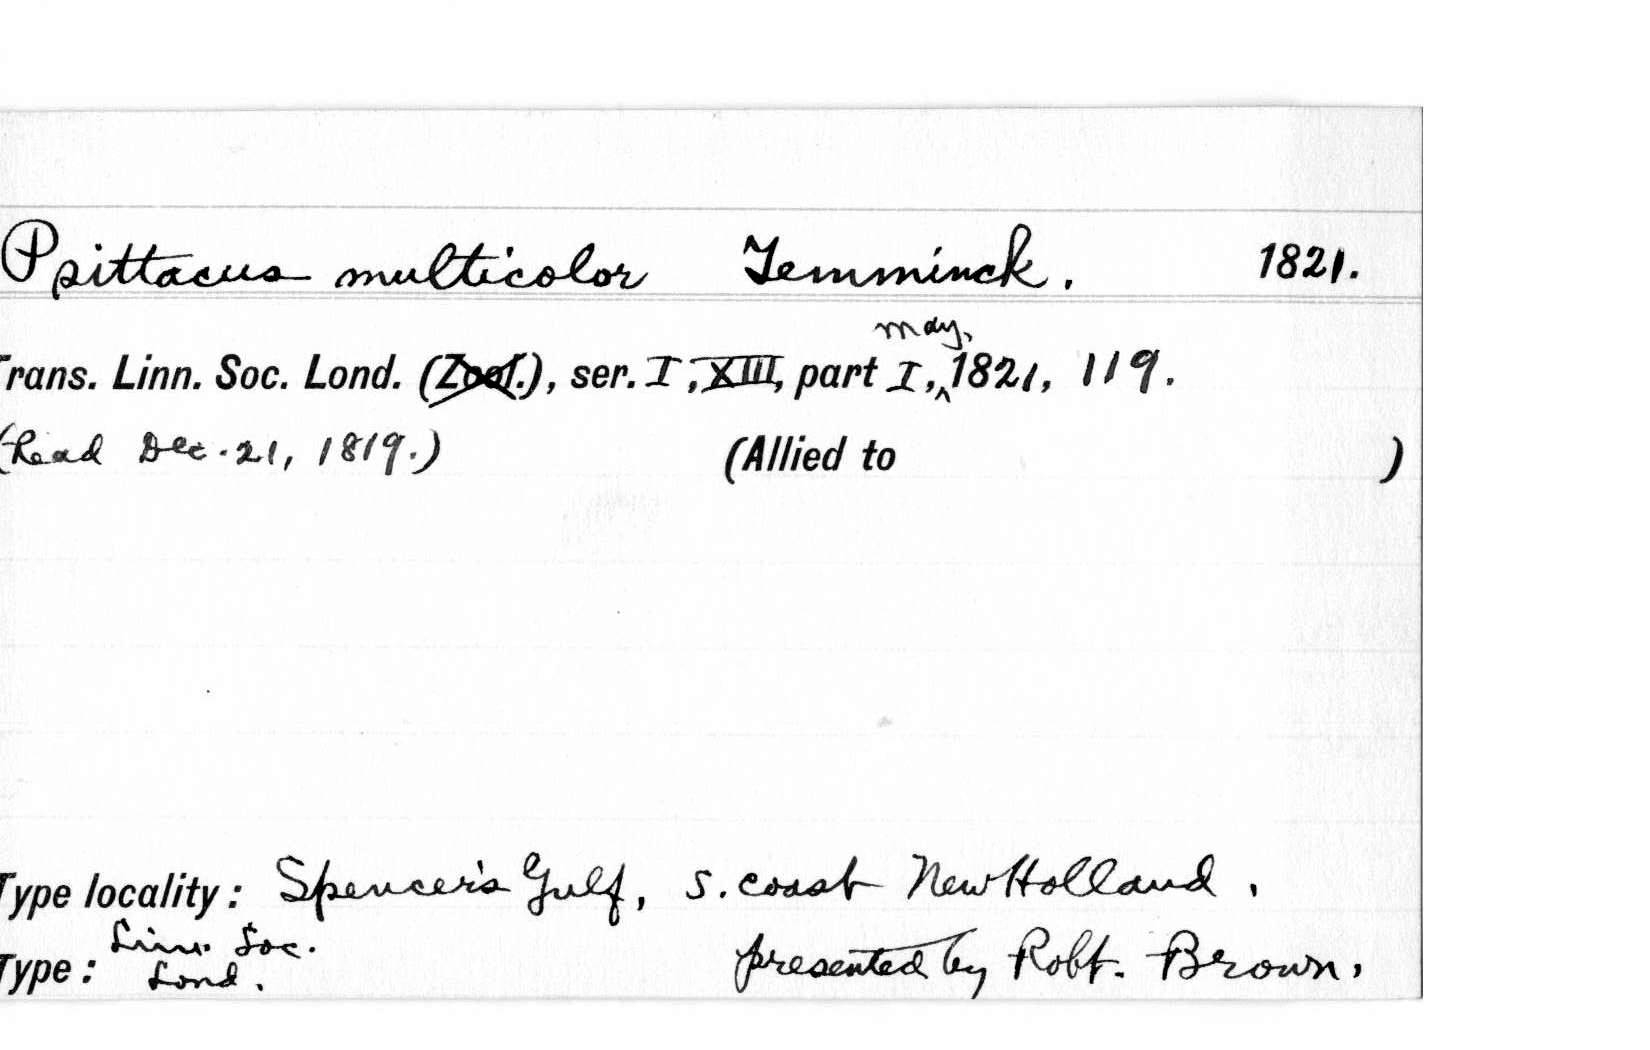 Psittacus multicolor Temminck. 1821.
may,
Trans. Linn. Soc. Lond. (Zool.), ser. I, XIII, part I, ^ 1821, 119.
(Read Dec. 21, 1819.) (Allied to )
Type locality: Spencer's Gulf, S. coast New Holland.
Linn. Soc.
Type: Lond. presented by Robt. Brown.